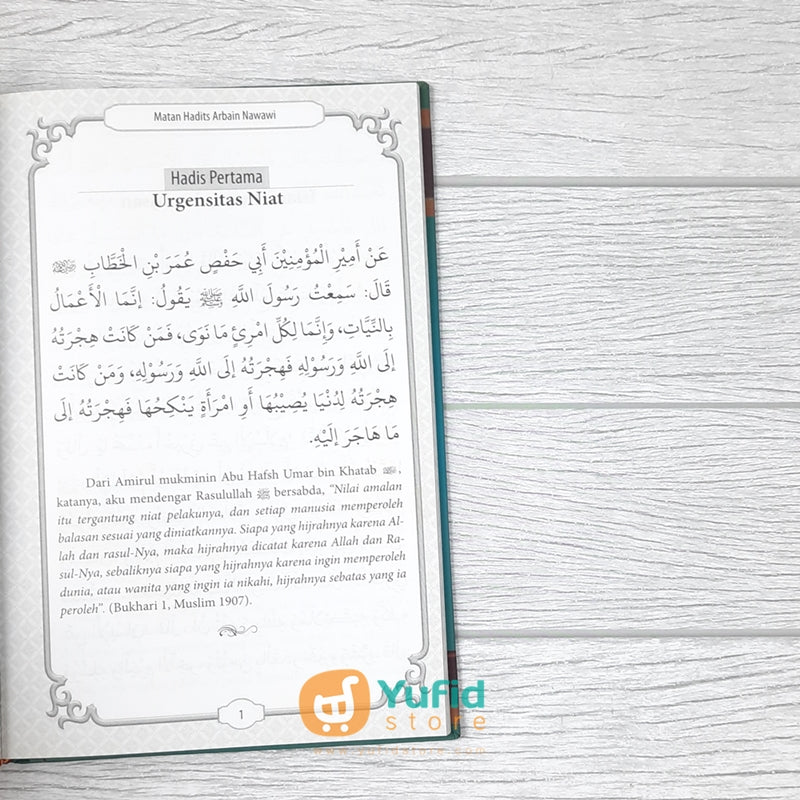 Matan Hadits Arbain Nawawi
Hadis Pertama
Urgensitas Niat
عَنْ أَمِيْرِ الْمُؤْمِنِيْنَ أَبِي حَفْصٍ عُمَرَ بْنِ الْخَطَّابِ
قَالَ: سَمِعْتُ رَسُولَ اللَّهِ ﷺ يَقُولُ: إِنَّمَا الْأَعْمَالُ
بِالنِّيَّاتِ، وَإِنَّمَا لِكُلِّ امْرِئٍ مَا نَوَى، فَمَنْ كَانَتْ هِجْرَتُهُ
إِلَى اللَّهِ وَرَسُوْلِهِ فَهِجْرَتُهُ إِلَى اللَّهِ وَرَسُوْلِهِ، وَمَنْ كَانَتْ
هِجْرَتُهُ لِدُنْيَا يُصِيْبُهَا أَوِ امْرَأَةٍ يَنْكِحُهَا فَهِجْرَتُهُ إِلَى
مَا هَاجَرَ إِلَيْهِ.
Dari Amirul mukminin Abu Hafsh Umar bin Khatab ,
katanya, aku mendengar Rasulullah ﷺ bersabda, “Nilai amalan
itu tergantung niat pelakunya, dan setiap manusia memperoleh
balasan sesuai yang diniatkannya. Siapa yang hijrahnya karena Al-
lah dan rasul-Nya, maka hijrahnya dicatat karena Allah dan Ra-
sul-Nya, sebaliknya siapa yang hijrahnya karena ingin memperoleh
dunia, atau wanita yang ingin ia nikahi, hijrahnya sebatas yang ia
peroleh”. (Bukhari 1, Muslim 1907).
1
Yufid
store
www.yufidstore.com